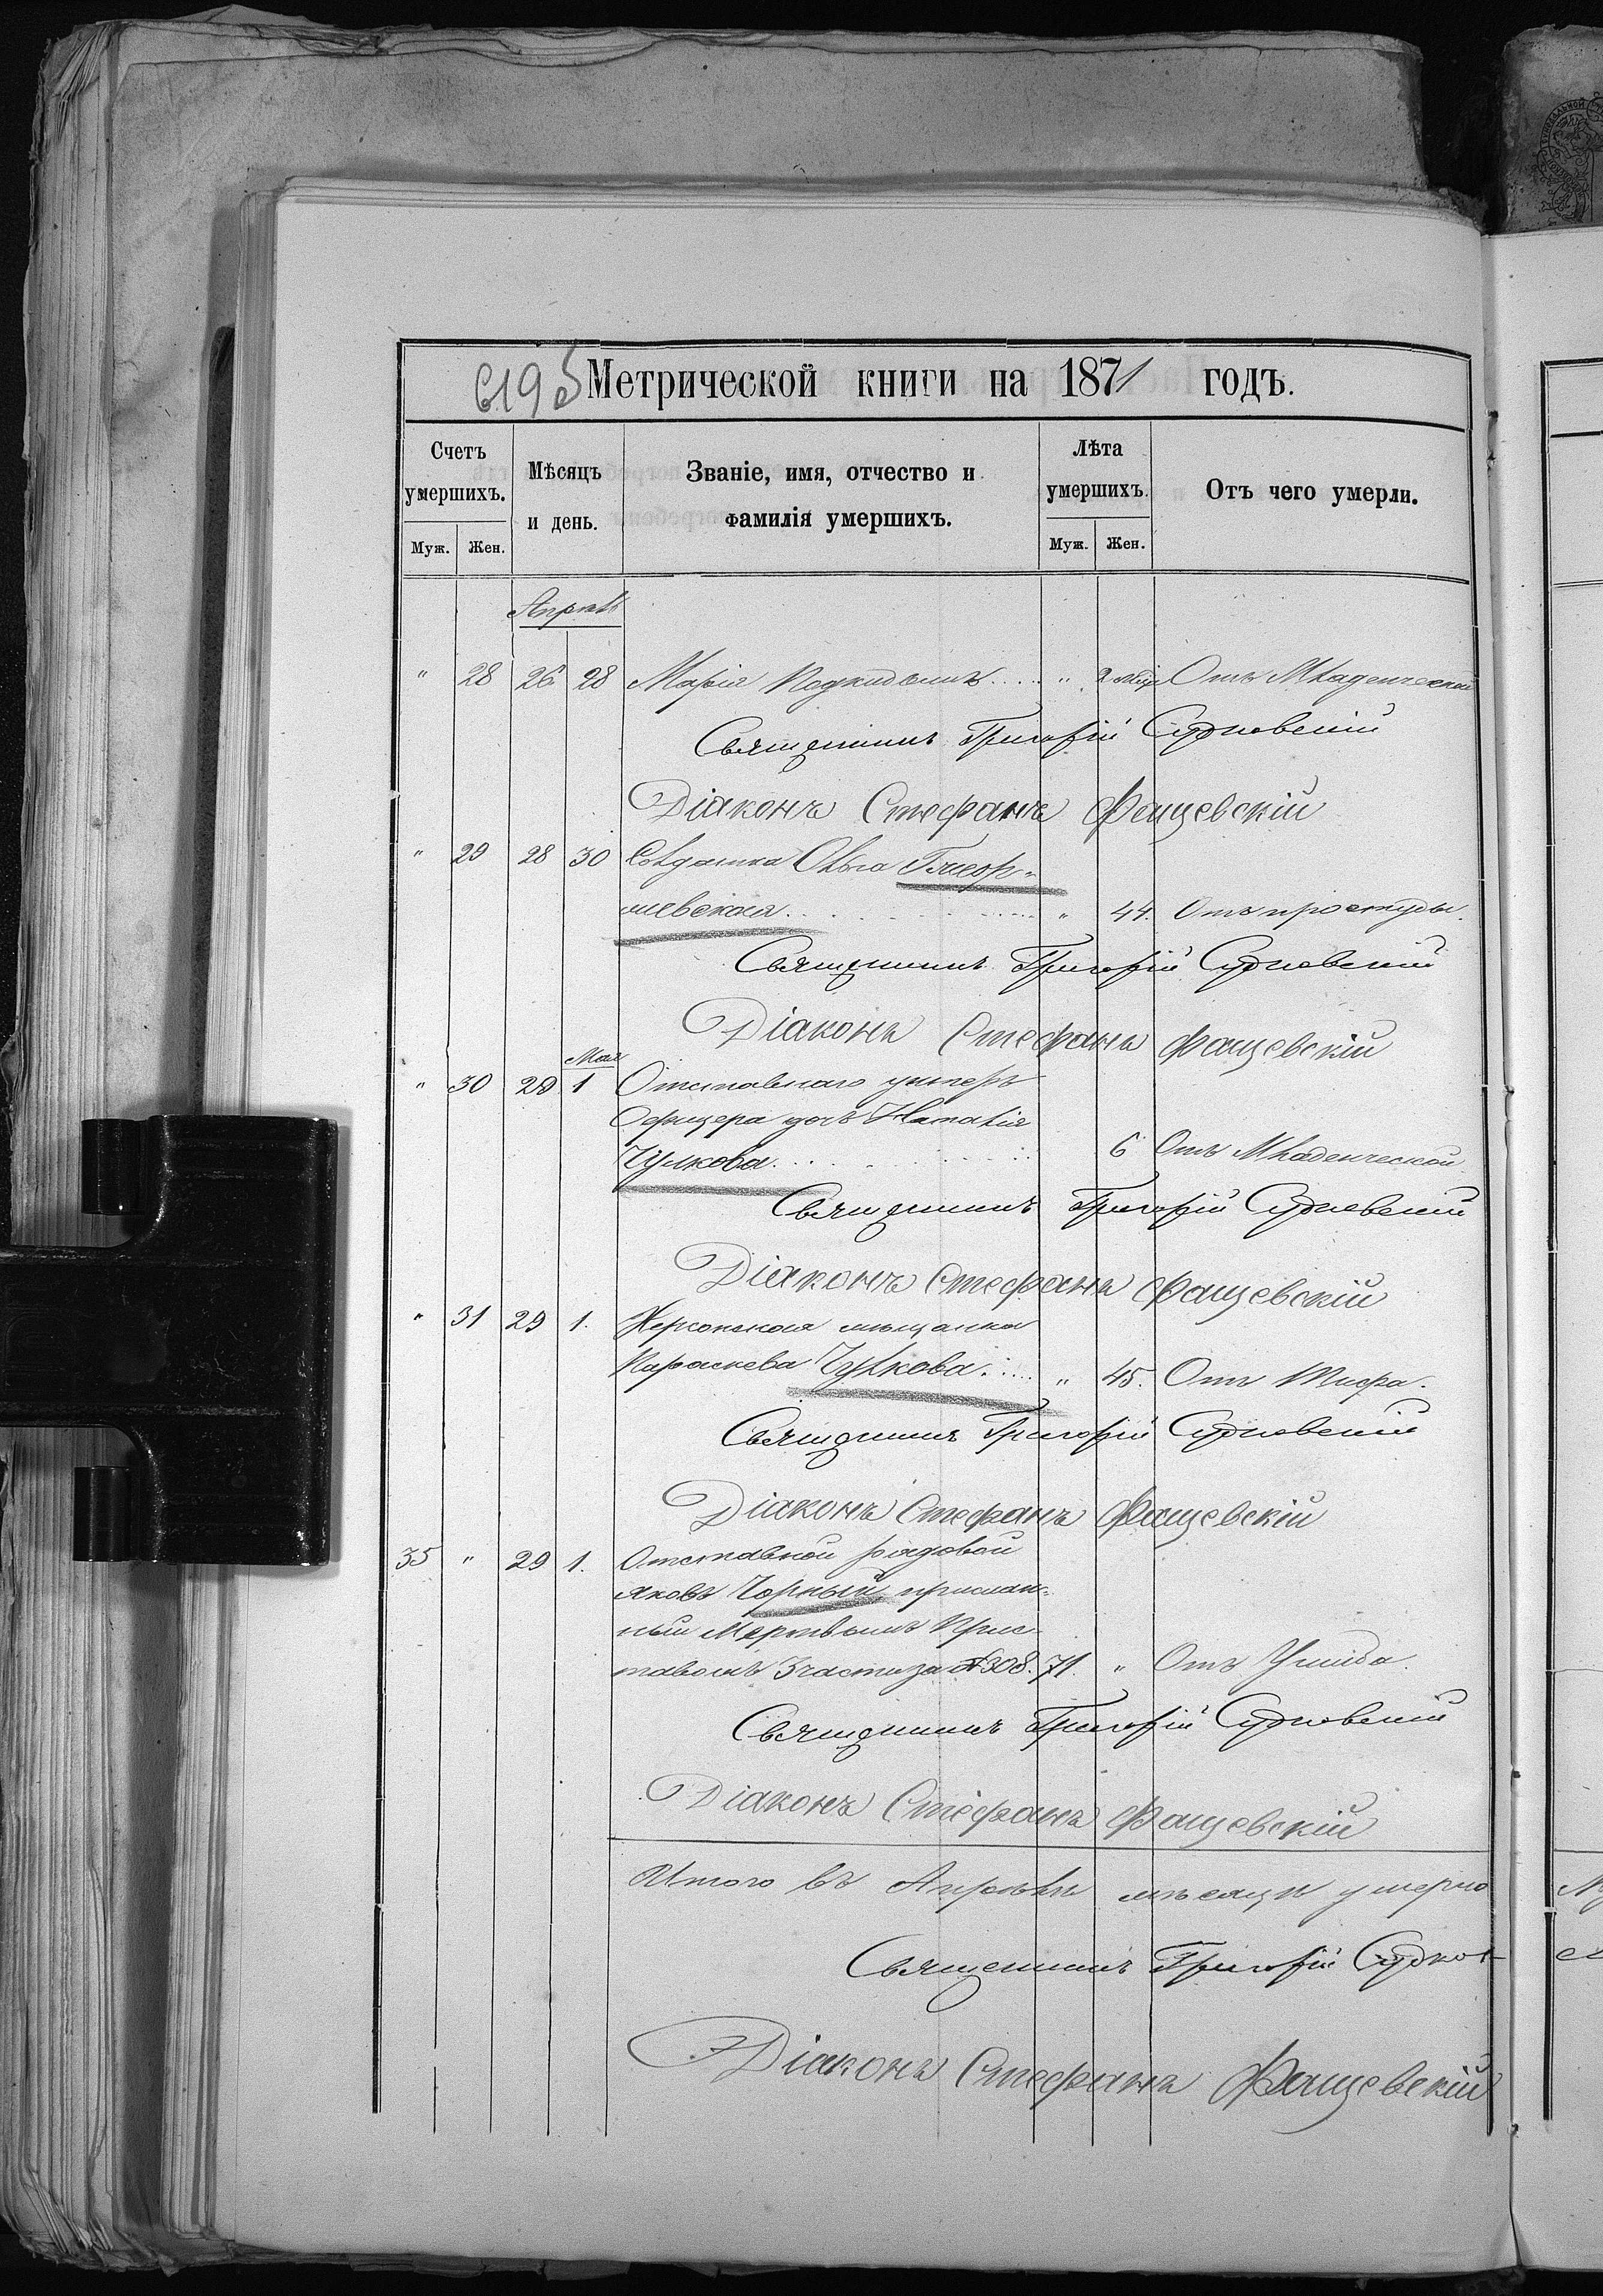 619 Метрической книги на 1871 годъ.
Счетъ умершихъ.
Муж. Жен.
Мѣсяцъ и день.
Званіе, имя, отчество и фамилія умершихъ.
Лѣта умершихъ.
Муж. Жен.
Отъ чего умерли.
Апрѣль
" 28 26 28 Марія Подкидышъ..... " 2 мѣс Отъ Младенческой
Священникъ Григорій Судковскій
Діаконъ Стефанъ Фащевскій
" 29 28 30 Солдатка Ольга
шевская. " 44. Отъ простуды.
Священникъ Григорій Судковскій
Діаконъ Стефанъ Фащевскій
Мая
" 30 29 1 Отставнаго унтеръ
Офицера дочь Наталія
Чулкова. 6 Отъ Младенческой
Священникъ Григорій Судковскій
Діаконъ Стефанъ Фащевскій
" 31 29 1. Херсонская мѣщанка
Параскева Чулкова. " 45. Отъ Тифа.
Священникъ Григорій Судковскій
Діаконъ Стефанъ Фащевскій
35 " 29 1. Отставной рядовой
Яковъ Чорный, прислан-
ный Мертвымъ Прис-
тавомъ 3 части за №308. 71. " Отъ Ушиба.
Священникъ Григорій Судковскій
Діаконъ Стефанъ Фащевскій
Итого въ Апрѣлѣ мѣсяцѣ умерло
Священникъ Григорій Судков-
Діаконъ Стефанъ Фащевскій